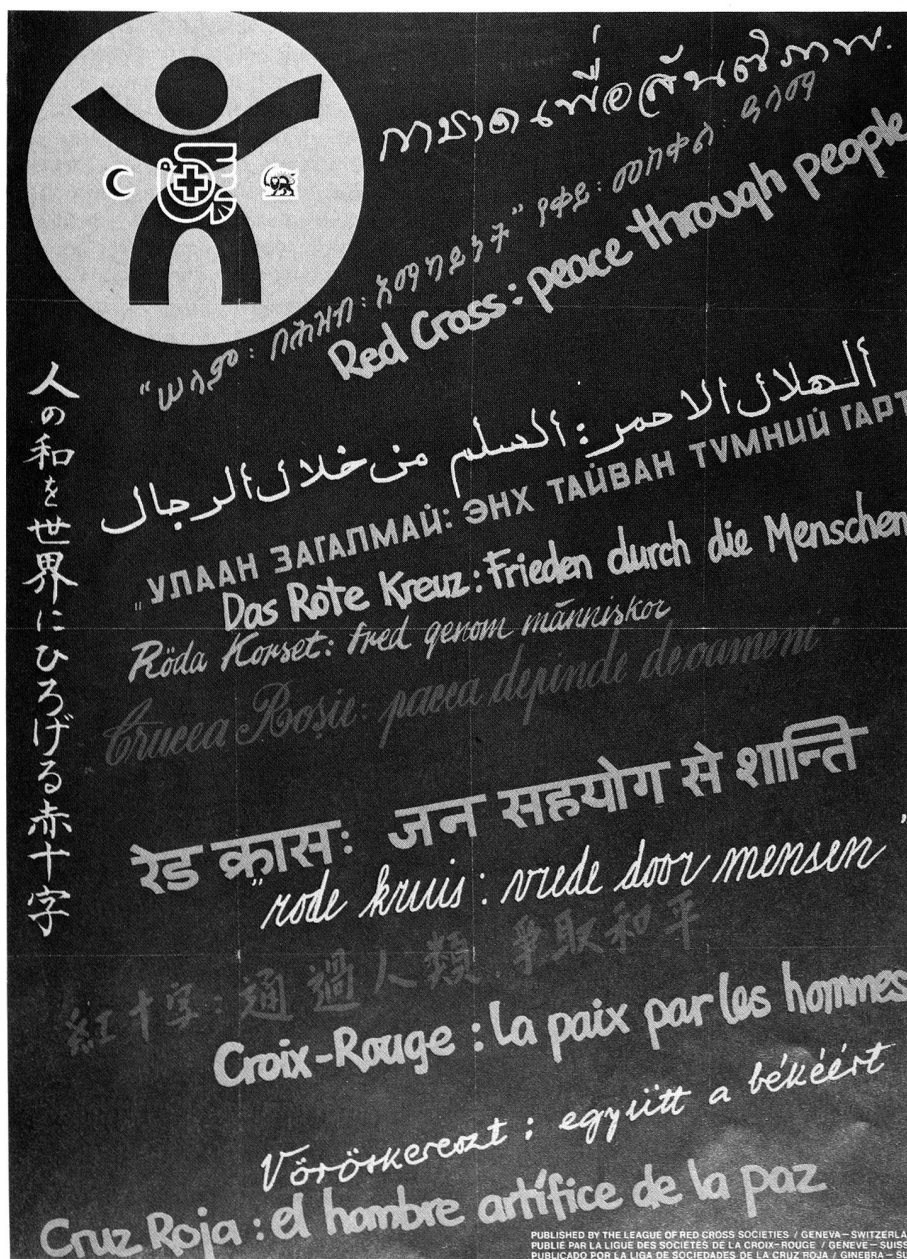 กาชาดเพื่อสันติภาพ.
"ሠላም፡ በሕዝብ፡ አማካይነት" የቀይ፡ መስቀል፡ ዓላማ
Red Cross: peace through people
الهلال الاحمر: السلم من خلال الرجال
"УЛААН ЗАГАЛМАЙ: ЭНХ ТАЙВАН ТУМНИЙ ГАРТ
Das Rote Kreuz: Frieden durch die Menschen
Röda Korset: fred genom människor
"Crucea Roșie: pacea depinde de oameni"
रेड क्रासः जन सहयोग से शान्ति
"rode kruis: vrede door mensen"
紅十字:通過人類.爭取和平
Croix-Rouge: la paix par les hommes
Vöröskereszt: együtt a békéért
Cruz Roja: el hombre artífice de la paz
人の和を世界にひろげる赤十字
PUBLISHED BY THE LEAGUE OF RED CROSS SOCIETIES / GENEVA – SWITZERLA
PUBLIÉ PAR LA LIGUE DES SOCIÉTÉS DE LA CROIX-ROUGE / GENÈVE – SUISS
PUBLICADO POR LA LIGA DE SOCIEDADES DE LA CRUZ ROJA / GINEBRA – SU